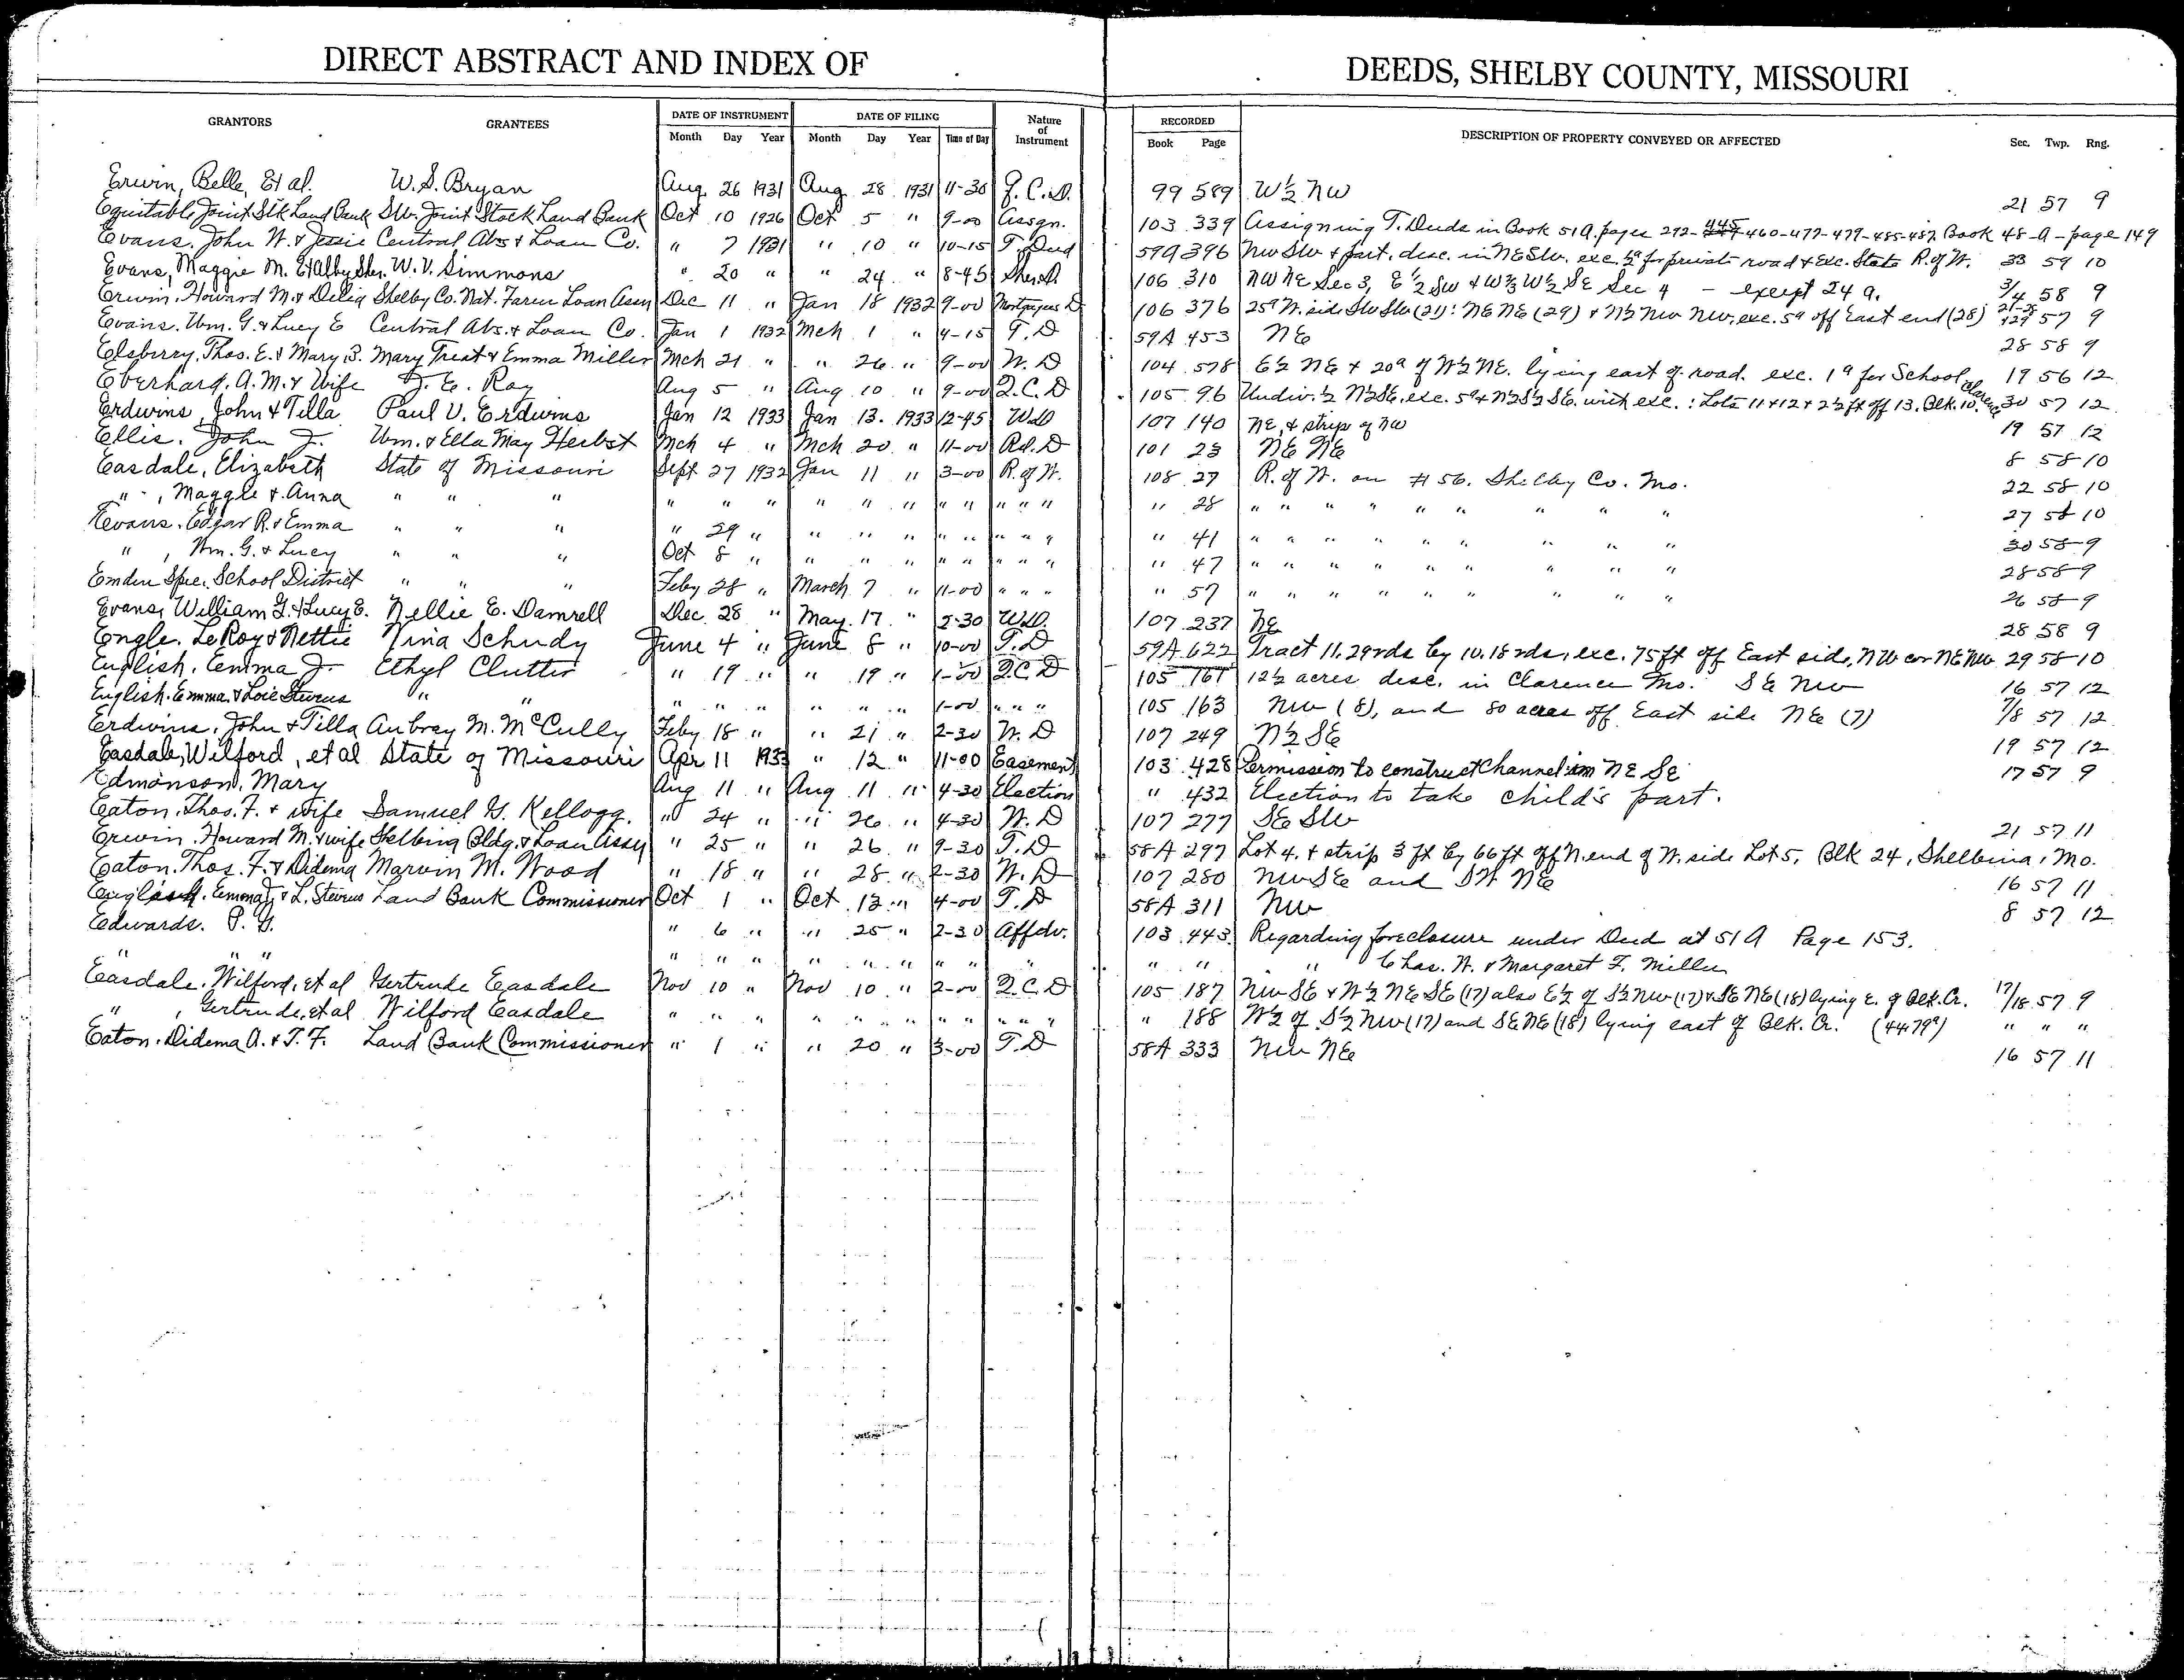 DIRECT ABSTRACT AND INDEX OF DEEDS, SHELBY COUNTY, MISSOURI
GRANTORS GRANTEES DATE OF INSTRUMENT DATE OF FILING Nature of Instrument RECORDED DESCRIPTION OF PROPERTY CONVEYED OR AFFECTED Sec. Twp. Rng.
Month Day Year Month Day Year Time of Day Book Page
Erwin, Belle, Et al. W. S. Bryan Aug 26 1931 Aug 28 1931 11-30 Q.C.D. 99 589 W½ NW 21 57 9
Equitable Joint Stk Land Bank SW. Joint Stock Land Bank Oct 10 1926 Oct 5 " 9-00 Assgn. 103 339 Assigning T. Deeds in Book 51A. pages 272- 460-477-479-485-487 Book 48-A-page 149
Evans, John W. & Jessie Central Abs & Loan Co. " 7 1931 " 10 " 10-15 T. Deed 59A 396 NW SW & part. desc. in NE SW. exc. ½a for private road & Exc. State R. of W. 33 59 10
Evans, Maggie M. Et Al by Sher. W. V. Simmons " 20 " " 24 " 8-45 Sher. D. 106 310 NW NE Sec 3, E½ SW & W⅔ W½ SE Sec 4 - except 24 a. 3/4 58 9
Erwin, Howard M. & Delia Shelby Co. Nat. Farm Loan Assn Dec 11 " Jan 18 1932 9-00 Mortgagees D 106 376 25a N. side SW SW (21): NE NE (29) & N½ NW NW, exc. 5a off East end (28) 21-28 +29 57 9
Evans, Wm. G. & Lucy E Central Abs. & Loan Co. Jan 1 1932 Mch 1 " 4-15 T. D 59A 453 NE 28 58 9
Elsberry, Thos. E. & Mary B. Mary Treat & Emma Miller Mch 21 " " 26 " 9-00 W. D 104 578 E½ NE & 20a of W½ NE. lying east of road. exc. 1a for School 19 56 12
Eberhard, A. M. & Wife J. E. Ray Aug 5 " Aug 10 " 9-00 Q.C.D 105 96 Undiv. ½ N½ SE. exc. 5a & N½ S½ SE. with exc.: Lots 11 & 12 & 2½ ft off 13. Blk. 10. Clarence 30 57 12
Erdwins, John & Tilla Paul V. Erdwins Jan 12 1933 Jan 13. 1933 12-45 WD 107 140 NE, & strip of NW 19 57 12
Ellis, John J. Wm. & Ella May Herbst Mch 4 " Mch 20 " 11-00 Ad. D 101 23 NE NE 8 58 10
Easdale, Elizabeth State of Missouri Sept 27 1932 Jan 11 " 3-00 R. of W. 108 27 R. of W. on #56. Shelby Co. Mo. 22 58 10
" , Maggie & Anna " " " " " " " " " " " " " " 28 " " " " " " " " 27 58 10
Evans, Edgar R. & Emma " " " " 29 " " " " " " " " " 41 " " " " " " " " 30 58 9
" , Wm. G. & Lucy " " " Oct 8 " " " " " " " " " 47 " " " " " " " " 28 58 9
Emden Spec. School District " " " Feby 28 " March 7 " 11-00 " " " " 57 " " " " " " " " 26 58 9
Evans, William G. & Lucy E. Nellie E. Damrell Dec. 28 " May. 17 " 2-30 WD. 107 237 NE 28 58 9
Engle, LeRoy & Nettie Nina Schudy June 4 " June 8 " 10-00 T. D 59A 622 Tract 11.29 rds by 10.18 rds, exc. 75 ft off East side, NW cor NE NW. 29 58 10
English, Emma J. Ethyl Clutter " 19 " " 19 " 1-00 Q.C.D 105 161 12½ acres desc. in Clarence Mo. SE NW 16 57 12
English, Emma & Loie Stevens " " " " " " " " 1-00 " " " 105 163 NW (8), and 80 acres off East side NE (7) 7/8 57 12
Erdwins, John & Tilla Aubray M. McCully Feby 18 " " 21 " 2-30 W. D 107 249 N½ SE 19 57 12
Easdale, Wilford, et al State of Missouri Apr 11 1933 " 12 " 11-00 Easement 103 428 Permission to construct Channel in NE SE 17 57 9
Edmonson, Mary Aug 11 " Aug 11 " 4-30 Election " 432 Election to take child's part.
Eaton, Thos. F. & wife Samuel G. Kellogg. " 24 " " 26 " 4-30 W. D 107 277 SE SW 21 57 11
Erwin, Howard M. & wife Shelbina Bldg. & Loan Assn " 25 " " 26 " 9-30 T. D 58A 297 Lot 4. & strip 3 ft by 66 ft off N. end of W. side Lot 5, Blk 24, Shelbina, Mo.
Eaton, Thos. F. & Didema Marvin M. Wood " 18 " " 28 " 2-30 W. D 107 280 NW SE and SW NE 16 57 11
English, Emma J. & L. Stevens Land Bank Commissioner Oct 1 " Oct 13 " 4-00 T. D 58A 311 NW 8 57 12
Edwards, P. G. " 6 " " 25 " 2-30 Affdv. 103 443 Regarding foreclosure under Deed at 51A Page 153.
" " " " " " " " " " " " " " " " Chas. W. & Margaret F. Miller
Easdale, Wilford, et al Gertrude Easdale Nov 10 " Nov 10 " 2-00 Q.C.D 105 187 NW SE & W½ NE SE (17) also E½ of S½ NW (17) & SE NE (18) lying E. of Blk. Cr. 17/18 57 9
" , Gertrude, et al Wilford Easdale " " " " " " " " " " " " 188 W½ of S½ NW (17) and SE NE (18) lying east of Blk. Cr. (44.79a) " " "
Eaton, Didema A. & T. F. Land Bank Commissioner " 1 " " 20 " 3-00 T. D 58A 333 NW NE 16 57 11